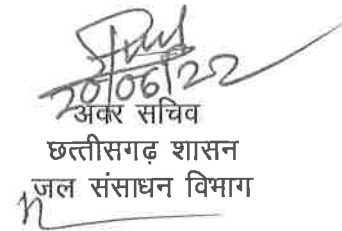 20/06/22
अवर सचिव
छत्तीसगढ़ शासन
जल संसाधन विभाग